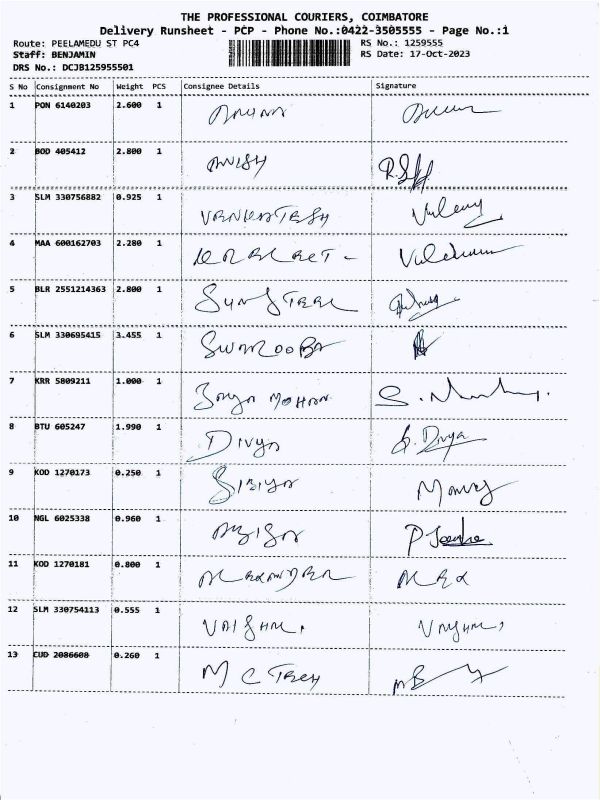 THE PROFESSIONAL COURIERS, COIMBATORE
Delivery Runsheet - PCP - Phone No.:0422-3505555 - Page No.:1
Route: PEELAMEDU ST PC4 RS No.: 1259555
Staff: BENJAMIN RS Date: 17-Oct-2023
DRS No.: DCJB125955501
S No Consignment No Weight PCS Consignee Details Signature
1 PON 6140203 2.600 1
2 BOD 405412 2.800 1 ANISH
3 SLM 330756882 0.925 1 VENKATESH
4 MAA 600162703 2.280 1
5 BLR 2551214363 2.800 1
6 SLM 330695415 3.455 1 SWAROOBA
7 KRR 5809211 1.000 1 MOHAN
8 BTU 605247 1.990 1 Divya S. Divya
9 KOD 1270173 0.250 1 SIBIYA
10 NGL 6025338 0.960 1
11 KOD 1270181 0.800 1 ALEXANDER ALEX
12 SLM 330754113 0.555 1
13 CUD 2086608 0.260 1 M C TECH